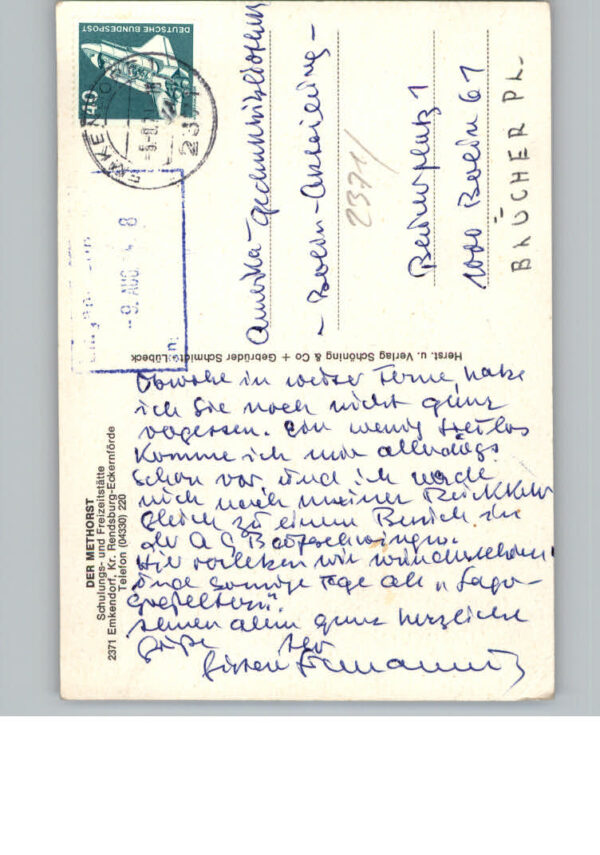 DER METHORST
Schulungs- und Freizeitstätte
2371 Emkendorf, Kr. Rendsburg-Eckernförde
Telefon (04330) 220
Obwohl in weiter Ferne, habe
ich Sie noch nicht ganz
vergessen. Ein wenig treulos
komme ich mir allerdings
schon vor, und ich werde
mich nach meiner Rückkehr
gleich zu einem Besuch in
der AGB aufschwingen.
Hier verleben wir wunderschöne
und sonnige Tage als
Ihnen allen ganz herzliche
Grüße Ihr
Herst. u. Verlag Schöning & Co + Gebrüder Schmidt, Lübeck
DEUTSCHE BUNDESPOST
40
EMKENDORF
23
-9. AUG.
Amerika-Gedenkbibliothek
- Berlin-Abteilung -
2371/
Blücherplatz 1
1000 Berlin 61
BLÜCHER PL.